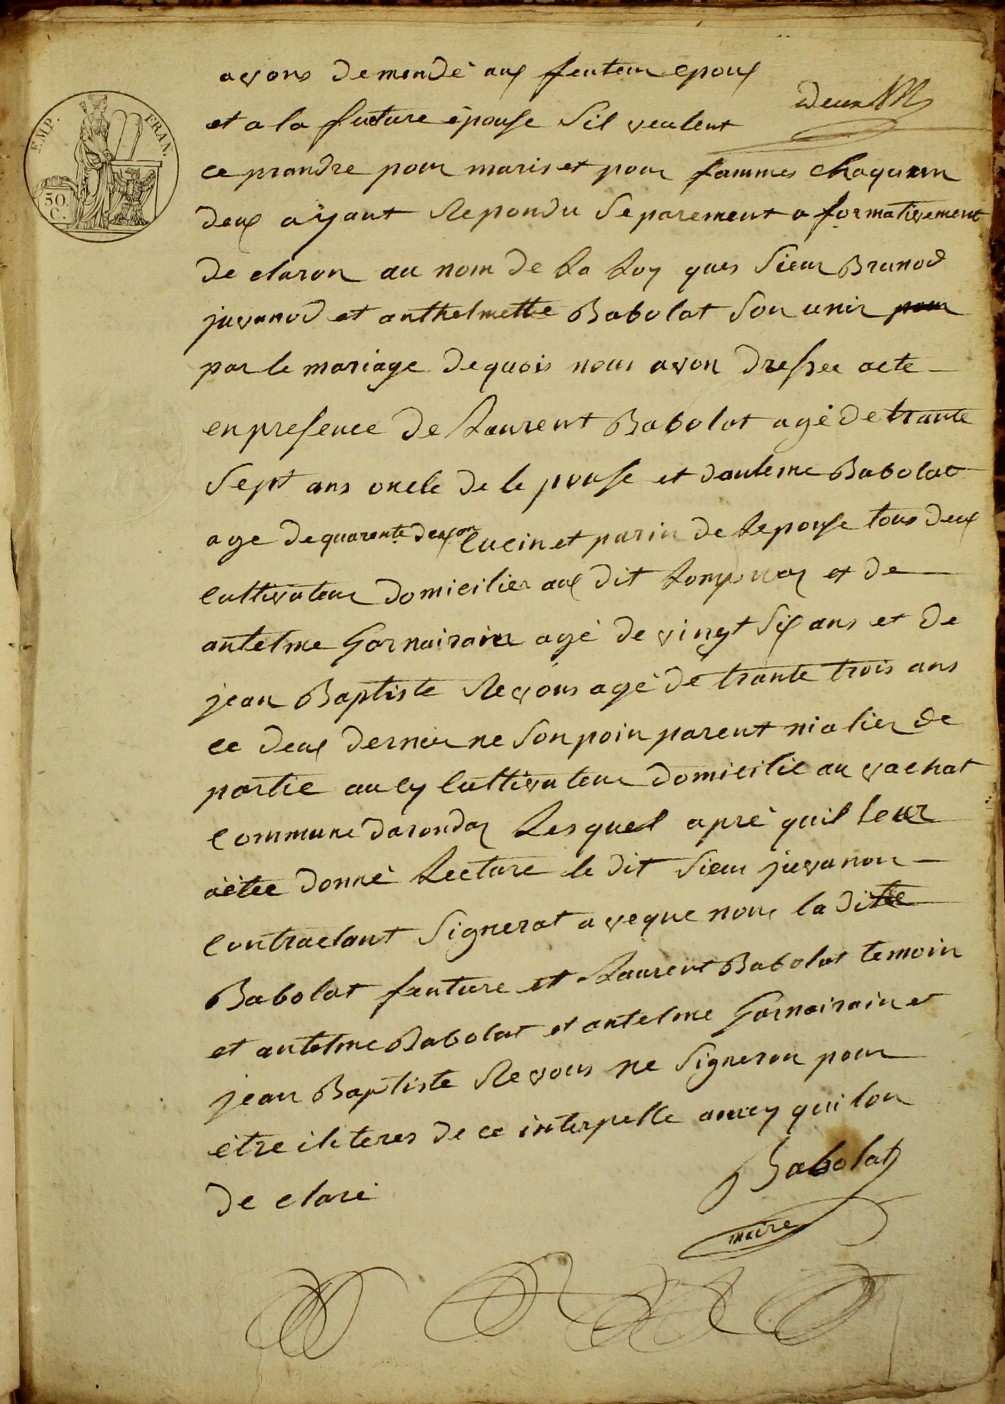 avons demendé aux feuteur epoux
deux
et a la fueture épouse Sil veulent
EMP. FRAN.
50 C.
ce prandre pour maris et pour fammes chaqunn
deux ayant Repondu Separement a formativement
de claron au nom de La Loy ques Sieur Brunod
juvanod et anthelmette Babolat Son unir pour
par le mariage dequois nous avon dressee acte
en presence de Laurent Babolat agé de trante
Sept ans oncle de le pouse et dantleme Babolat
age de quarente deux an Cucin et parin de Lepouse tous deux
Cultivateur domicilier aux dit et de
antelme Gornairain agé de vingt Six ans et de
jean Baptiste Revous agé de trante trois ans
ce deux dernier ne Son poin parent ni alier de
partie aucy Cultivateur domicilie au vachat
Commune darondaz Lesquel apré quil leur
aétée donné Lecture le dit Sieur juvanon
Contractant Signerat aveque nous la ditte
Babolat fauture et Laurent Babolat temoin
et antelme Babolat et antelme Gornairain et
jean Baptiste Revous ne Signeron pour
étre iliteres de ce interpelle aucy qui lon
de claré
Babolat
maire